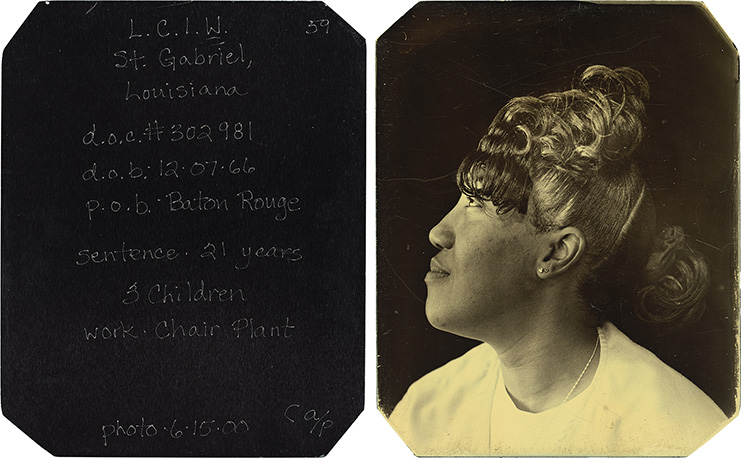 L.C.I.W. 59
St. Gabriel,
Louisiana
d.o.c.# 302981
d.o.b. 12.07.66
p.o.b. Baton Rouge
sentence. 21 years
3 Children
work. Chair Plant
photo.6.15.00 a/p